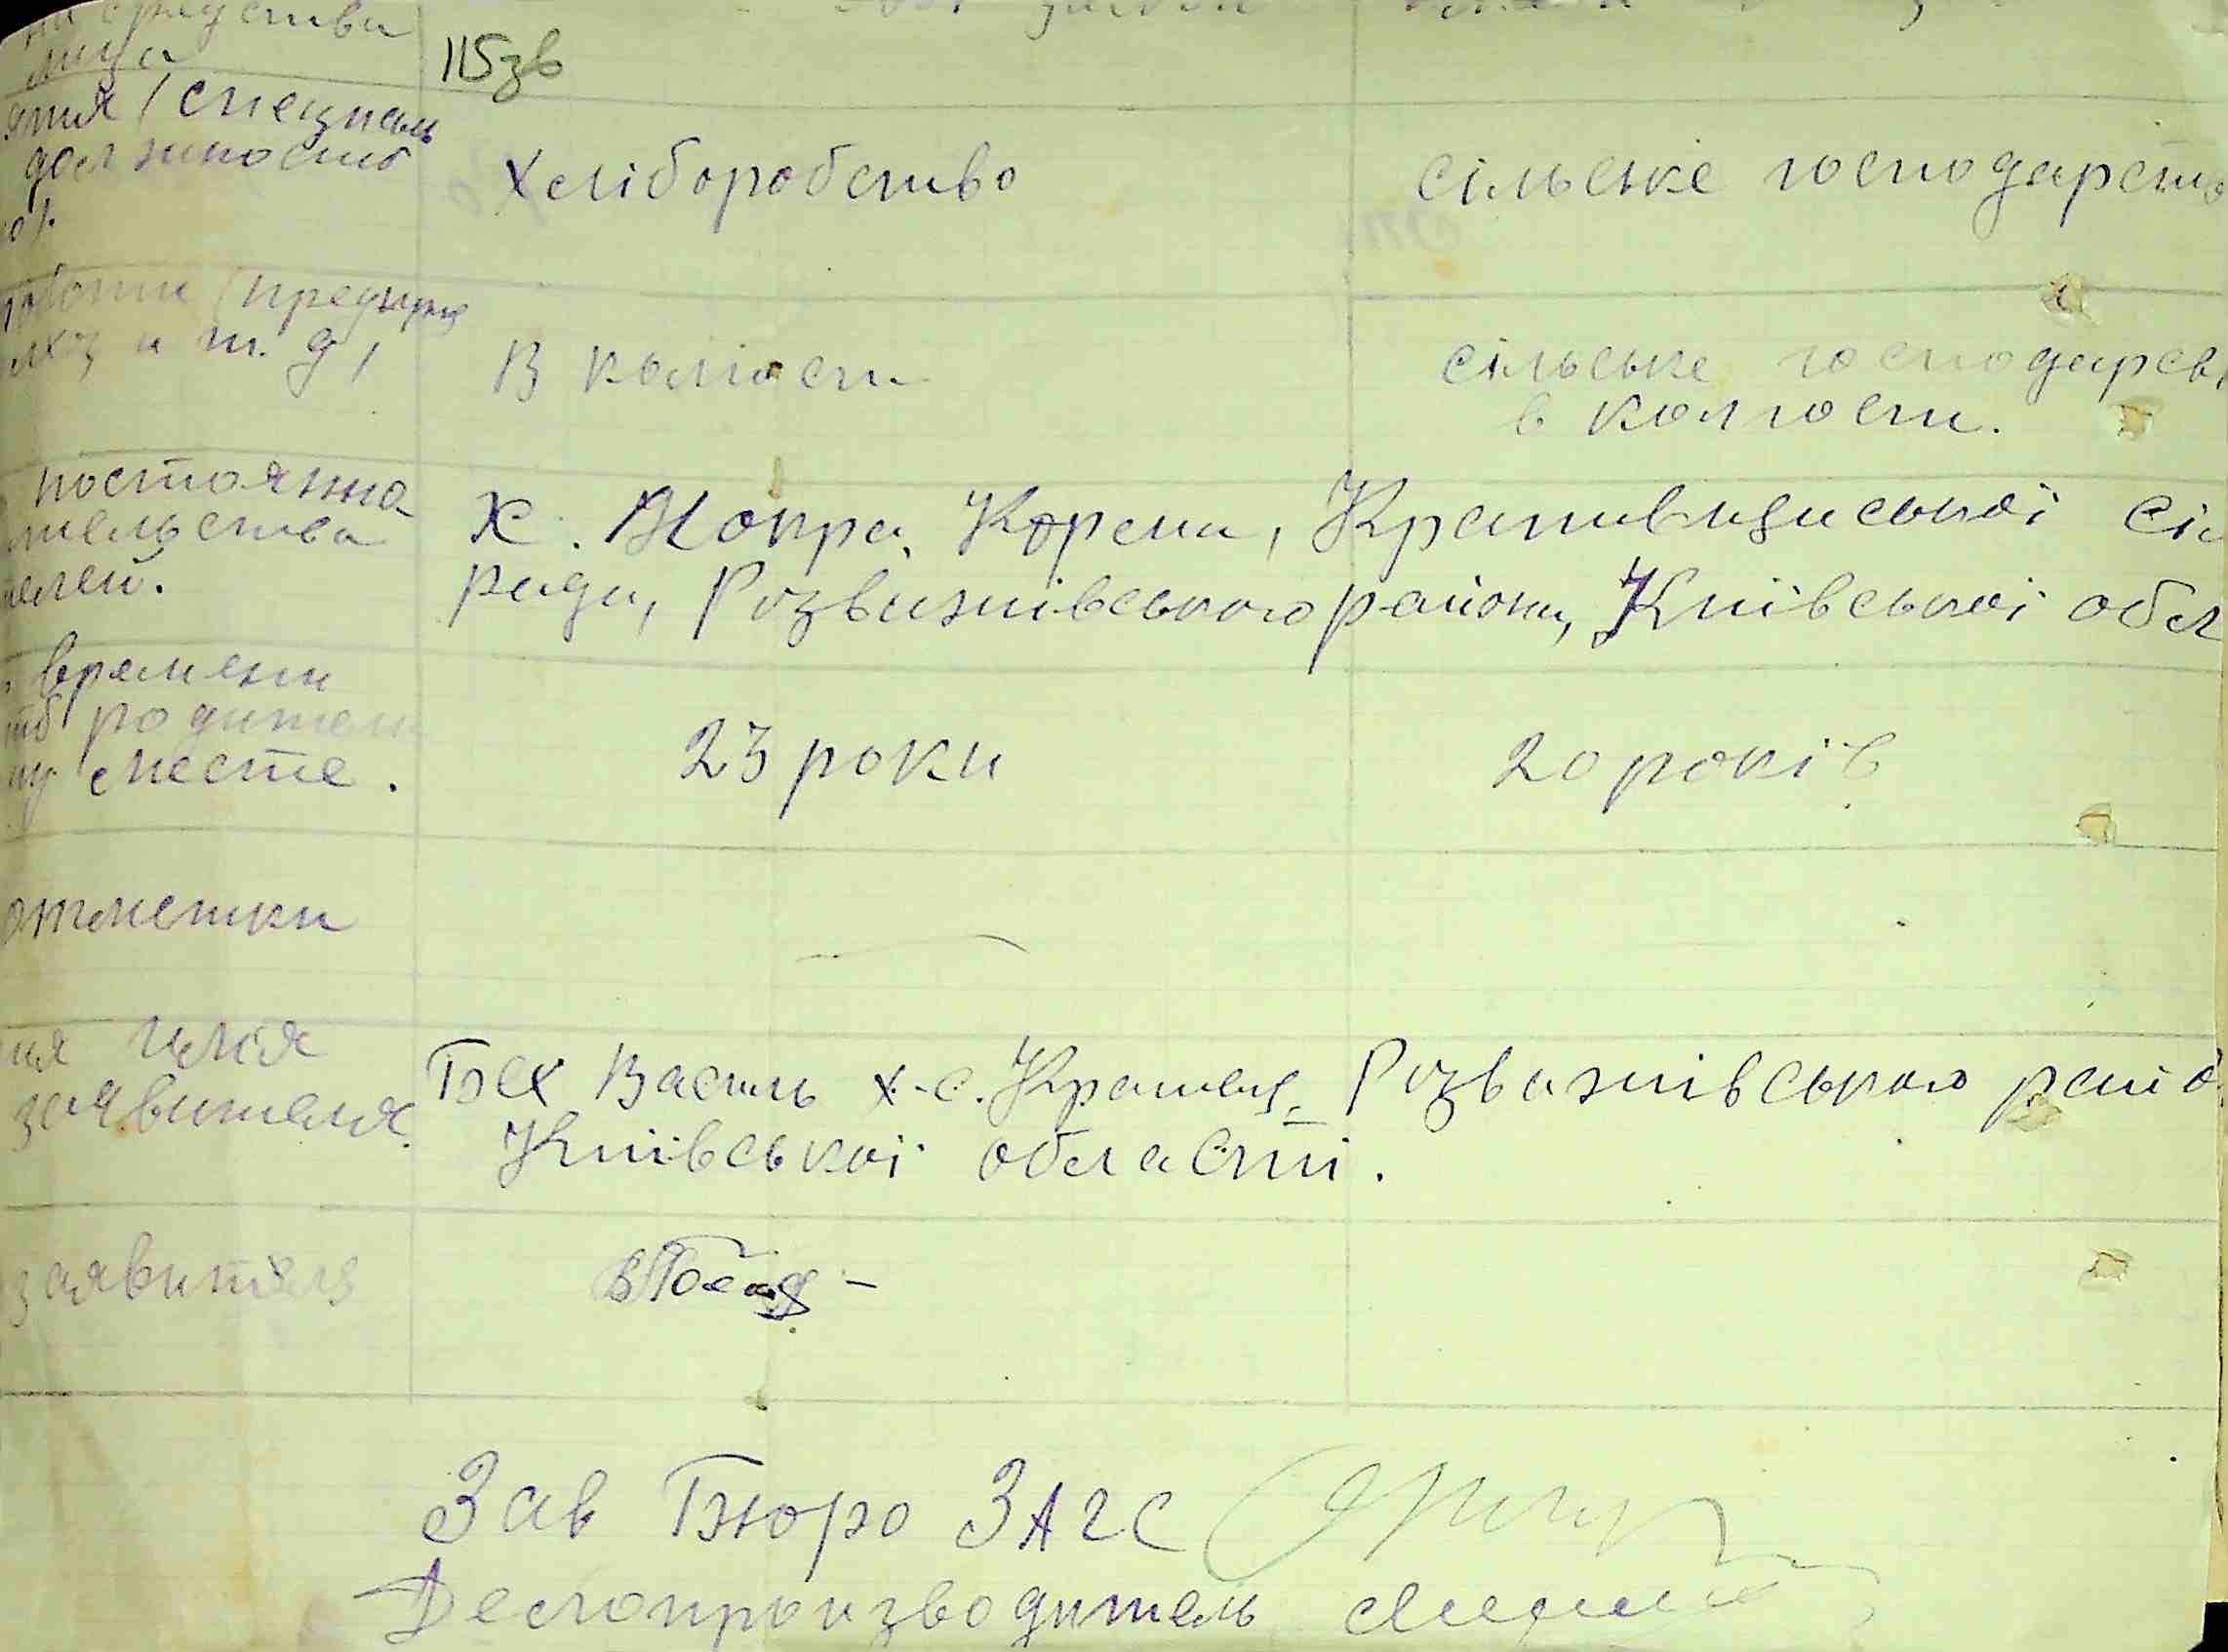 средства
лица
115зв
ятия / специаль
должность
Хліборобство
сільське господарство
работы (предприя
и т. д,
В колгосп
сільське господарсв
в колгосп.
постоянно
тельства
телей.
х. Мокра Корма, Крапивндиської сіл
ради, Розважівського району, Київської обл
времени
родители
месте.
23 роки
20 років
отметки
ия имя
заявителя.
Бех Василь х-с. Розважівського райо
Київської області.
заявителя
Зав Бюро ЗАГС
Делопроизводитель